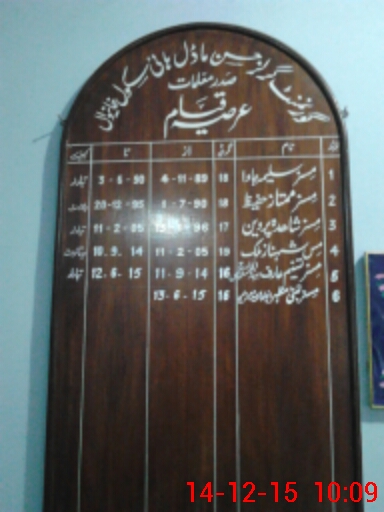 گورنمنٹ گرلز جن ماڈل ہائی سکول خانیوال
صدر معلمات
عرصہ قیام
نام گریڈ از تا
1 مسز سلیمہ 18 4-11-89 3-6-90 تبادلہ
2 مسز ممتاز حفیظ 18 1-7-90 20-12-95
3 مسز شاہدہ پروین 17 96 11-2-05 تبادلہ
4 مس شہناز ملک 19 11-2-05 10.9.14
5 مسز تسنیم عارف 16 11-9-14 12.6.15 تبادلہ
6 مسز 16 13-6-15
14-12-15 10:09